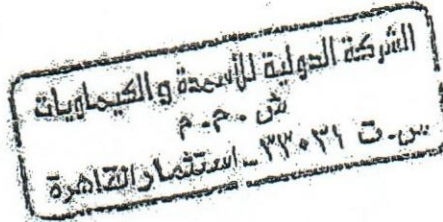 الشركة الدولية للأسمدة والكيماويات
ش.م.م
س.ت ٣٣٠٣٩ - استثمار القاهرة